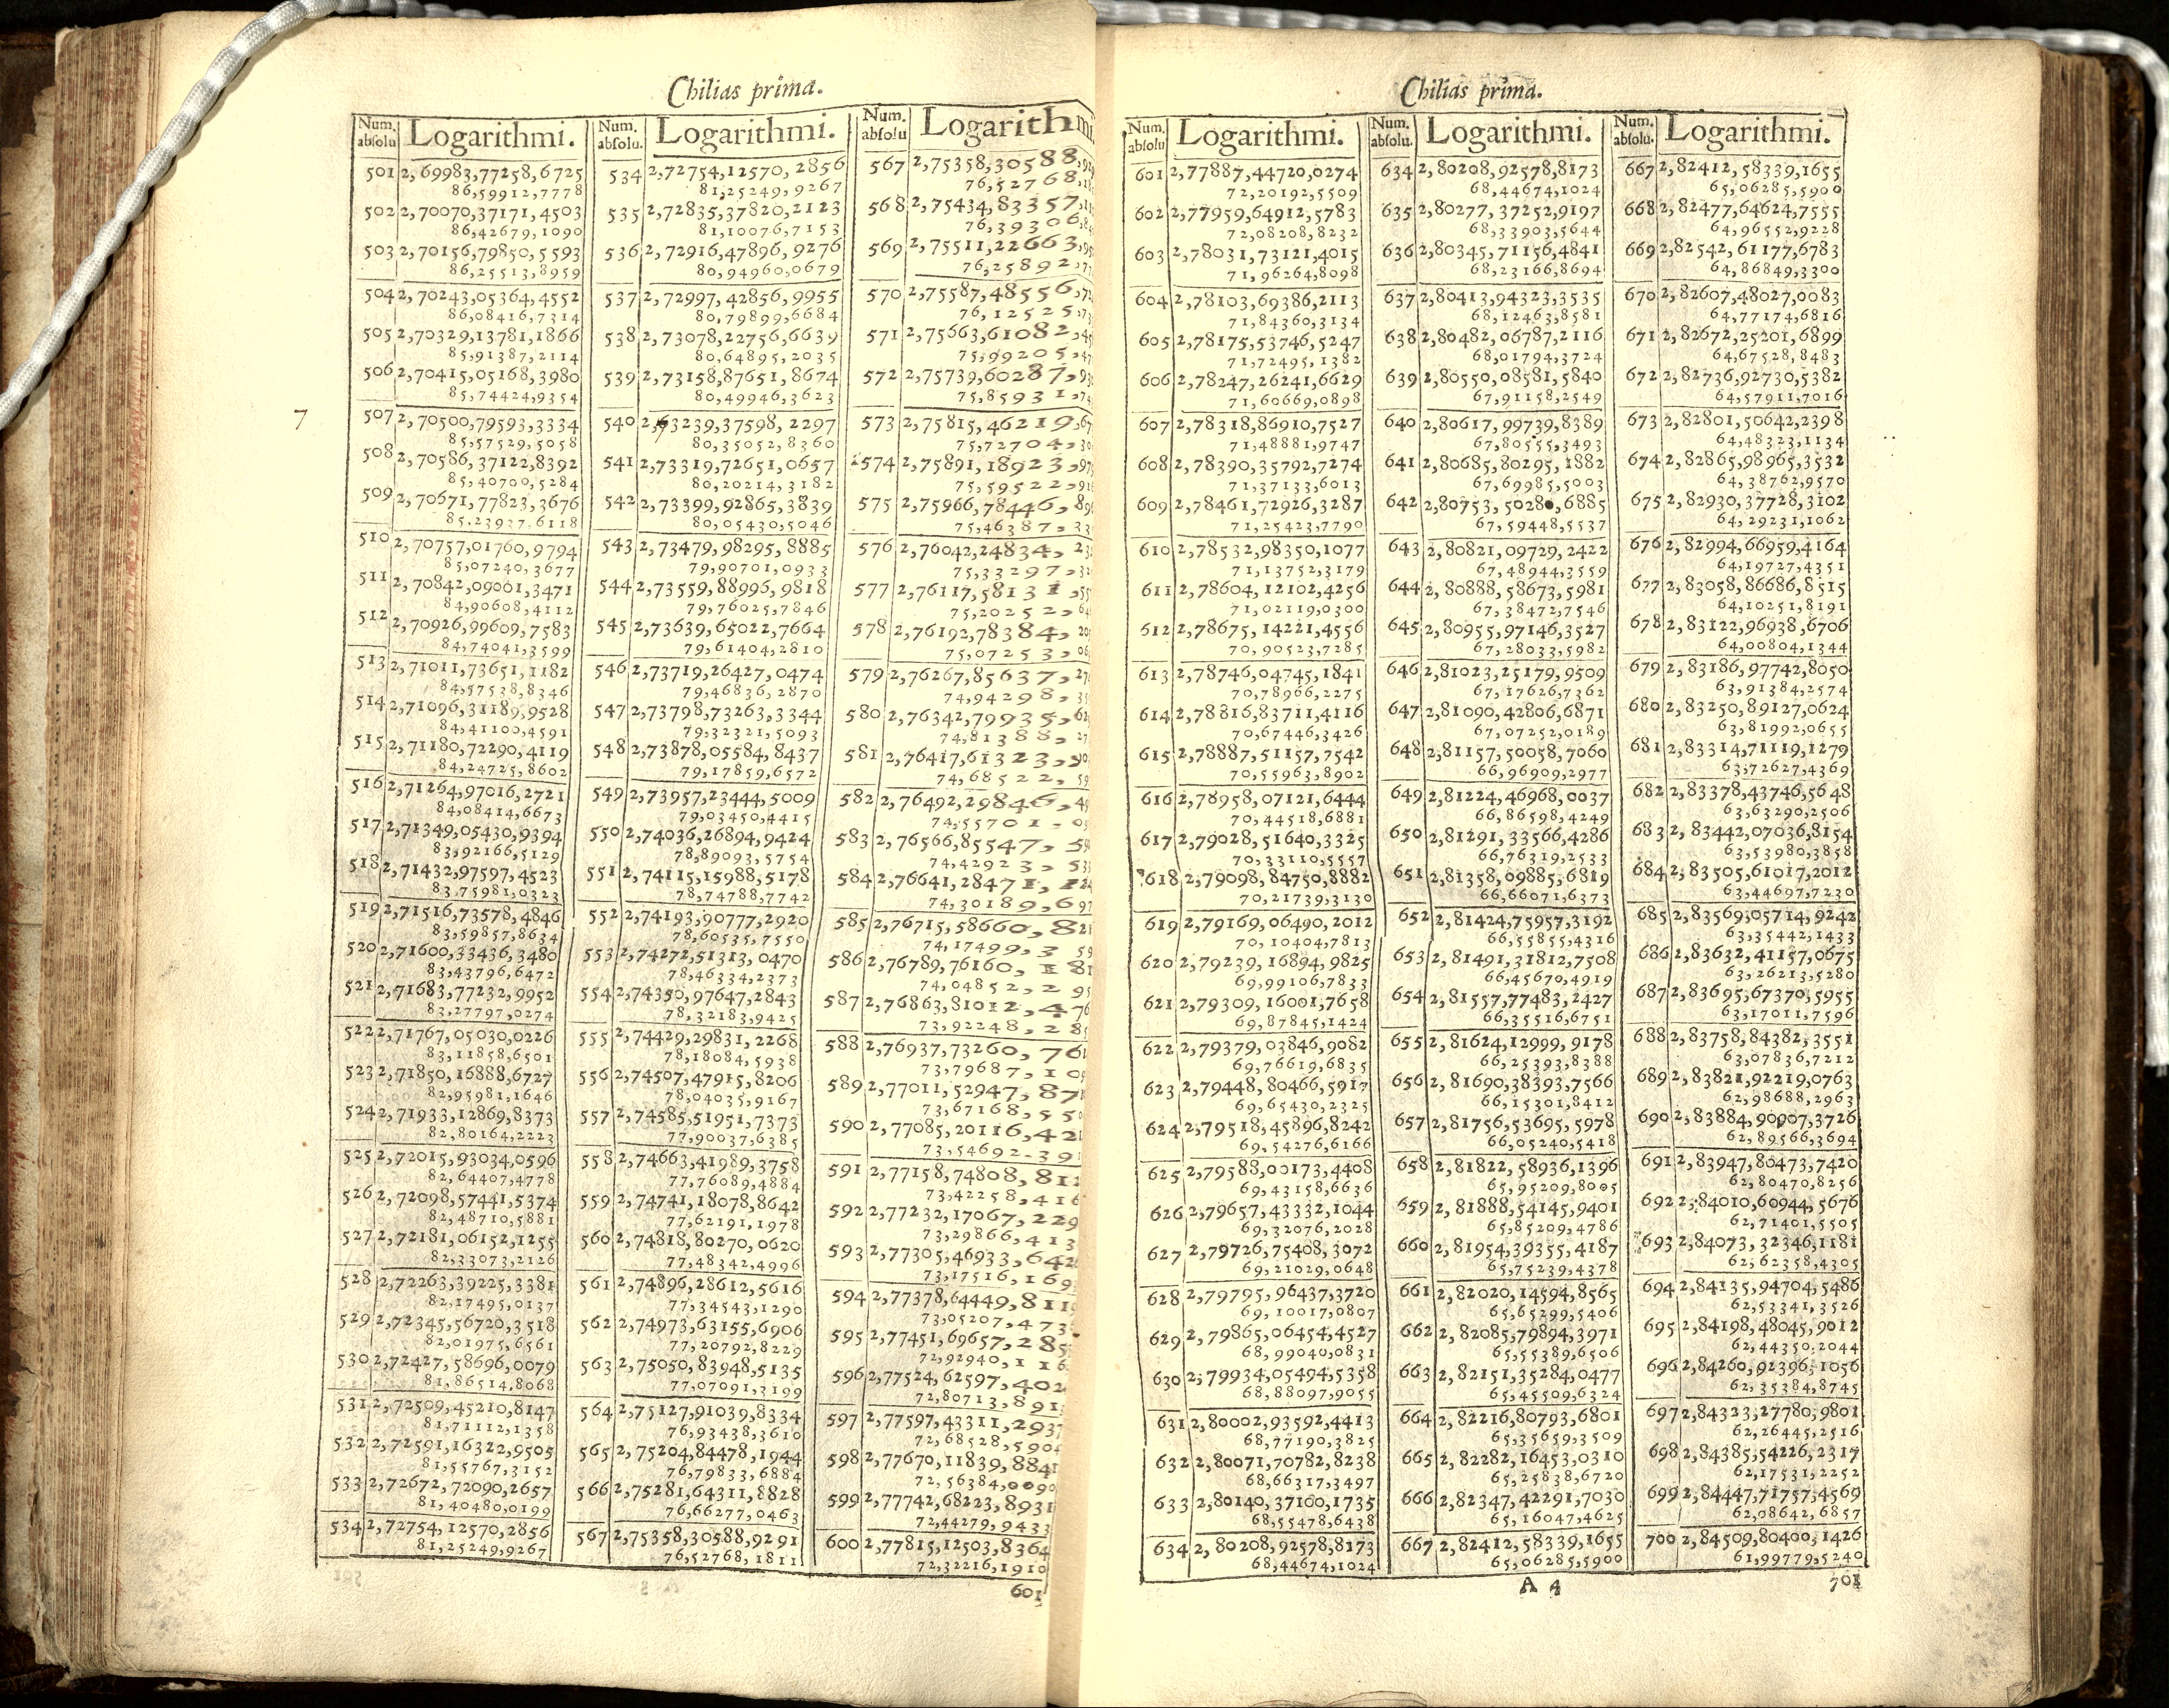 Chilias prima.
Num. absolu
Logarithmi.
501 2,69983,77258,6725
86,59912,7778
502 2,70070,37171,4503
86,42679,1090
503 2,70156,79850,5593
86,25513,8959
504 2,70243,05364,4552
86,08416,7314
505 2,70329,13781,1866
85,91387,2114
506 2,70415,05168,3980
85,74424,9354
7
507 2,70500,79593,3334
85,57529,5058
508 2,70586,37122,8392
85,40700,5284
509 2,70671,77823,3676
85,23937,6118
510 2,70757,01760,9794
85,07240,3677
511 2,70842,09001,3471
84,90608,4112
512 2,70926,99609,7583
84,74041,3599
513 2,71011,73651,1182
84,57538,8346
514 2,71096,31189,9528
84,41100,4591
515 2,71180,72290,4119
84,24725,8602
516 2,71264,97016,2721
84,08414,6673
517 2,71349,05430,9394
83,92166,5129
518 2,71432,97597,4523
83,75981,0323
519 2,71516,73578,4846
83,59857,8634
520 2,71600,33436,3480
83,43796,6472
521 2,71683,77232,9952
83,27797,0274
522 2,71767,05030,0226
83,11858,6501
523 2,71850,16888,6727
82,95981,1646
524 2,71933,12869,8373
82,80164,2223
525 2,72015,93034,0596
82,64407,4778
526 2,72098,57441,5374
82,48710,5881
527 2,72181,06152,1255
82,33073,2126
528 2,72263,39225,3381
82,17495,0137
529 2,72345,56720,3518
82,01975,6561
530 2,72427,58696,0079
81,86514,8068
531 2,72509,45210,8147
81,71112,1358
532 2,72591,16322,9505
81,55767,3152
533 2,72672,72090,2657
81,40480,0199
534 2,72754,12570,2856
81,25249,9267
Num. absolu.
Logarithmi.
534 2,72754,12570,2856
81,25249,9267
535 2,72835,37820,2123
81,10076,7153
536 2,72916,47896,9276
80,94960,0679
537 2,72997,42856,9955
80,79899,6684
538 2,73078,22756,6639
80,64895,2035
539 2,73158,87651,8674
80,49946,3623
540 2,73239,37598,2297
80,35052,8360
541 2,73319,72651,0657
80,20214,3182
542 2,73399,92865,3839
80,05430,5046
543 2,73479,98295,8885
79,90701,0933
544 2,73559,88996,9818
79,76025,7846
545 2,73639,65022,7664
79,61404,2810
546 2,73719,26427,0474
79,46836,2870
547 2,73798,73263,3344
79,32321,5093
548 2,73878,05584,8437
79,17859,6572
549 2,73957,23444,5009
79,03450,4415
550 2,74036,26894,9424
78,89093,5754
551 2,74115,15988,5178
78,74788,7742
552 2,74193,90777,2920
78,60535,7550
553 2,74272,51313,0470
78,46334,2373
554 2,74350,97647,2843
78,32183,9425
555 2,74429,29831,2268
78,18084,5938
556 2,74507,47915,8206
78,04035,9167
557 2,74585,51951,7373
77,90037,6385
558 2,74663,41989,3758
77,76089,4884
559 2,74741,18078,8642
77,62191,1978
560 2,74818,80270,0620
77,48342,4996
561 2,74896,28612,5616
77,34543,1290
562 2,74973,63155,6906
77,20792,8229
563 2,75050,83948,5135
77,07091,3199
564 2,75127,91039,8334
76,93438,3610
565 2,75204,84478,1944
76,79833,6884
566 2,75281,64311,8828
76,66277,0463
567 2,75358,30588,9291
76,52768,1811
Num. absolu
Logarithmi.
567 2,75358,30588,
76,52768,
568 2,75434,83357,
76,39306,
569 2,75511,22663,
76,25892,
570 2,75587,48556,
76,12525,
571 2,75663,61082,
75,99205,
572 2,75739,60287,
75,85931,
573 2,75815,46219,
75,72704,
574 2,75891,18923,
75,59522,
575 2,75966,78446,
75,46387,
576 2,76042,24834,
75,33297,
577 2,76117,58131,
75,20252,
578 2,76192,78384,
75,07253,
579 2,76267,85637,
74,94298,
580 2,76342,79935,
74,81388,
581 2,76417,61323,
74,68522,
582 2,76492,29846,
74,55701,
583 2,76566,85547,
74,42923,
584 2,76641,28471,
74,30189,6
585 2,76715,58660,8
74,17499,3
586 2,76789,76160,18
74,04852,2
587 2,76863,81012,476
73,92248,28
588 2,76937,73260,76
73,79687,10
589 2,77011,52947,87
73,67168,55
590 2,77085,20116,42
73,54692,39
591 2,77158,74808,81
73,42258,41
592 2,77232,17067,229
73,29866,413
593 2,77305,46933,642
73,17516,169
594 2,77378,64449,811
73,05207,473
595 2,77451,69657,285
72,92940,116
596 2,77524,62597,402
72,80713,891
597 2,77597,43311,2937
72,68528,5904
598 2,77670,11839,8841
72,56384,0090
599 2,77742,68223,8931
72,44279,9433
600 2,77815,12503,8364
72,32216,1910
601
Chilias prima.
Num. absolu
Logarithmi.
601 2,77887,44720,0274
72,20192,5509
602 2,77959,64912,5783
72,08208,8232
603 2,78031,73121,4015
71,96264,8098
604 2,78103,69386,2113
71,84360,3134
605 2,78175,53746,5247
71,72495,1382
606 2,78247,26241,6629
71,60669,0898
607 2,78318,86910,7527
71,48881,9747
608 2,78390,35792,7274
71,37133,6013
609 2,78461,72926,3287
71,25423,7790
610 2,78532,98350,1077
71,13752,3179
611 2,78604,12102,4256
71,02119,0300
512 2,78675,14221,4556
70,90523,7285
613 2,78746,04745,1841
70,78966,2275
614 2,78816,83711,4116
70,67446,3426
615 2,78887,51157,7542
70,55963,8902
616 2,78958,07121,6444
70,44518,6881
617 2,79028,51640,3325
70,33110,5557
618 2,79098,84750,8882
70,21739,3130
619 2,79169,06490,2012
70,10404,7813
620 2,79239,16894,9825
69,99106,7833
621 2,79309,16001,7658
69,87845,1424
622 2,79379,03846,9082
69,76619,6835
623 2,79448,80466,5917
69,65430,2325
624 2,79518,45896,8242
69,54276,6166
625 2,79588,00173,4408
69,43158,6636
626 2,79657,43332,1044
69,32076,2028
627 2,79726,75408,3072
69,21029,0648
628 2,79795,96437,3720
69,10017,0807
629 2,79865,06454,4527
68,99040,0831
630 2,79934,05494,5358
68,88097,9055
631 2,80002,93592,4413
68,77190,3825
632 2,80071,70782,8238
68,66317,3497
633 2,80140,37100,1735
68,55478,6438
634 2,80208,92578,8173
68,44674,1024
Num. absolu.
Logarithmi.
634 2,80208,92578,8173
68,44674,1024
635 2,80277,37252,9197
68,33903,5644
636 2,80345,71156,4841
68,23166,8694
637 2,80413,94323,3535
68,12463,8581
638 2,80482,06787,2116
68,01794,3724
639 2,80550,08581,5840
67,91158,2549
640 2,80617,99739,8389
67,80555,3493
641 2,80685,80295,1882
67,69985,5003
642 2,80753,5028,6885
67,59448,5537
643 2,80821,09729,2422
67,48944,3559
644 2,80888,58673,5981
67,38472,7546
645 2,80955,97146,3527
67,28033,5982
646 2,81023,25179,9509
67,17626,7362
647 2,81090,42806,6871
67,07252,0189
648 2,81157,50058,7060
66,96909,2977
649 2,81224,46968,0037
66,86598,4249
650 2,81291,33566,4286
66,76319,2533
651 2,81358,09885,6819
66,66071,6373
652 2,81424,75957,3192
66,55855,4316
653 2,81491,31812,7508
66,45670,4919
654 2,81557,77483,2427
66,35516,6751
655 2,81624,12999,9178
66,25393,8388
656 2,81690,38393,7566
66,15301,8412
657 2,81756,53695,5978
66,05240,5418
658 2,81822,58936,1396
65,95209,8005
659 2,81888,54145,9401
65,85209,4786
660 2,81954,39355,4187
65,75239,4378
661 2,82020,14594,8565
65,65299,5406
662 2,82085,79894,3971
65,55389,6506
663 2,82151,35284,0477
65,45509,6324
664 2,82216,80793,6801
65,35659,3509
665 2,82282,16453,0310
65,25838,6720
666 2,82347,42291,7030
65,16047,4625
667 2,82412,58339,1655
65,06285,5900
Num. absolu.
Logarithmi.
667 2,82412,58339,1655
65,06285,5900
668 2,82477,64624,7555
64,96552,9228
669 2,82542,61177,6783
64,86849,3300
670 2,82607,48027,0083
64,77174,6816
671 2,82672,25201,6899
64,67528,8483
672 2,82736,92730,5382
64,57911,7016
673 2,82801,50642,2398
64,48323,1134
674 2,82865,98965,3532
64,38762,9570
675 2,82930,37728,3102
64,29231,1062
676 2,82994,66959,4164
64,19727,4351
677 2,83058,86686,8515
64,10251,8191
678 2,83122,96938,6706
64,00804,1344
679 2,83186,97742,8050
63,91384,2574
680 2,83250,89127,0624
63,81992,0655
681 2,83314,71119,1279
63,72627,4369
682 2,83378,43746,5648
63,63290,2506
683 2,83442,07036,8154
63,53980,3858
684 2,83505,61017,2012
63,44697,7230
685 2,83569,05714,9242
63,35442,1433
686 2,83632,41157,0675
63,26213,5280
687 2,83695,67370,5955
63,17011,7596
688 2,83758,84382,3551
63,07836,7212
689 2,83821,92219,0763
62,98688,2963
690 2,83884,90907,3726
62,89566,3694
691 2,83947,80473,7420
62,80470,8256
692 2,84010,60944,5676
62,71401,5505
693 2,84073,32346,1181
62,62358,4305
694 2,84135,94704,5486
62,53341,3526
695 2,84198,48045,9012
62,44350,2044
696 2,84260,92396,1056
62,35384,8745
697 2,84323,27780,9801
62,26445,2516
698 2,84385,54226,2317
62,17531,2252
699 2,84447,71757,4569
62,08642,6857
700 2,84509,80400,1426
61,99779,5240
A 4
701